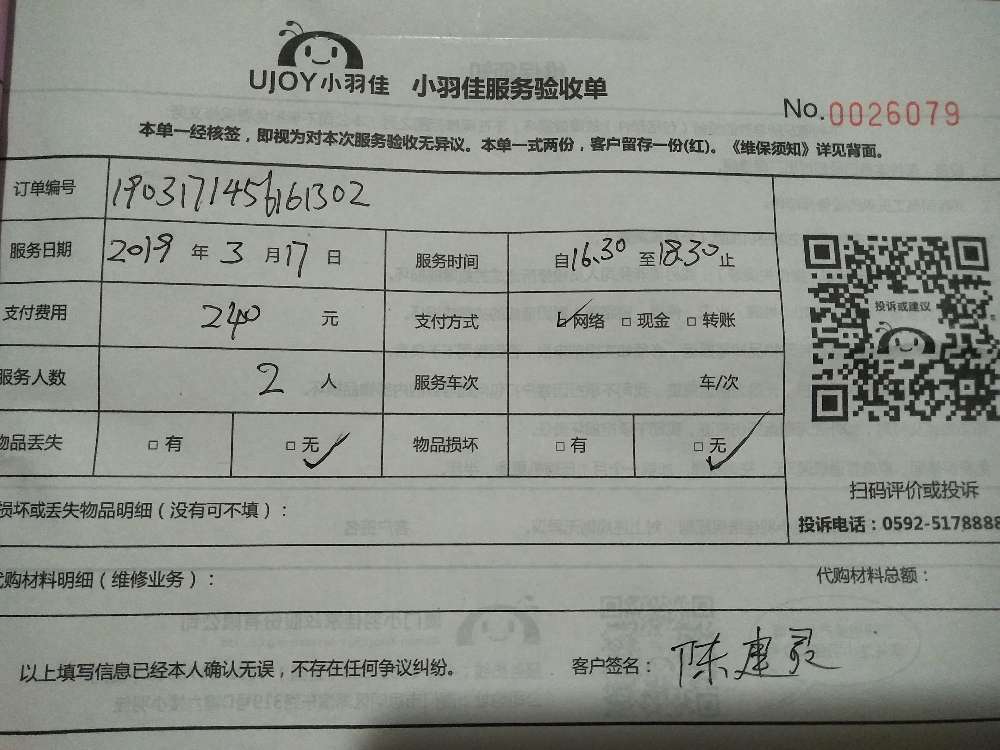 UJOY小羽佳 小羽佳服务验收单
No.0026079
本单一经核签，即视为对本次服务验收无异议。本单一式两份，客户留存一份(红)。《维保须知》详见背面。
订单编号 1903171456161302
服务日期 2019 年 3 月 17 日 服务时间 自16.30 至18.30止
支付费用 240 元 支付方式 □网络 □现金 □转账
投诉或建议
服务人数 2 人 服务车次 车/次
物品丢失 □有 □无 ✓ 物品损坏 □有 □无 ✓
扫码评价或投诉
损坏或丢失物品明细（没有可不填）：
投诉电话：0592-5178888
代购材料明细（维修业务）： 代购材料总额：
以上填写信息已经本人确认无误，不存在任何争议纠纷。 客户签名：陈建